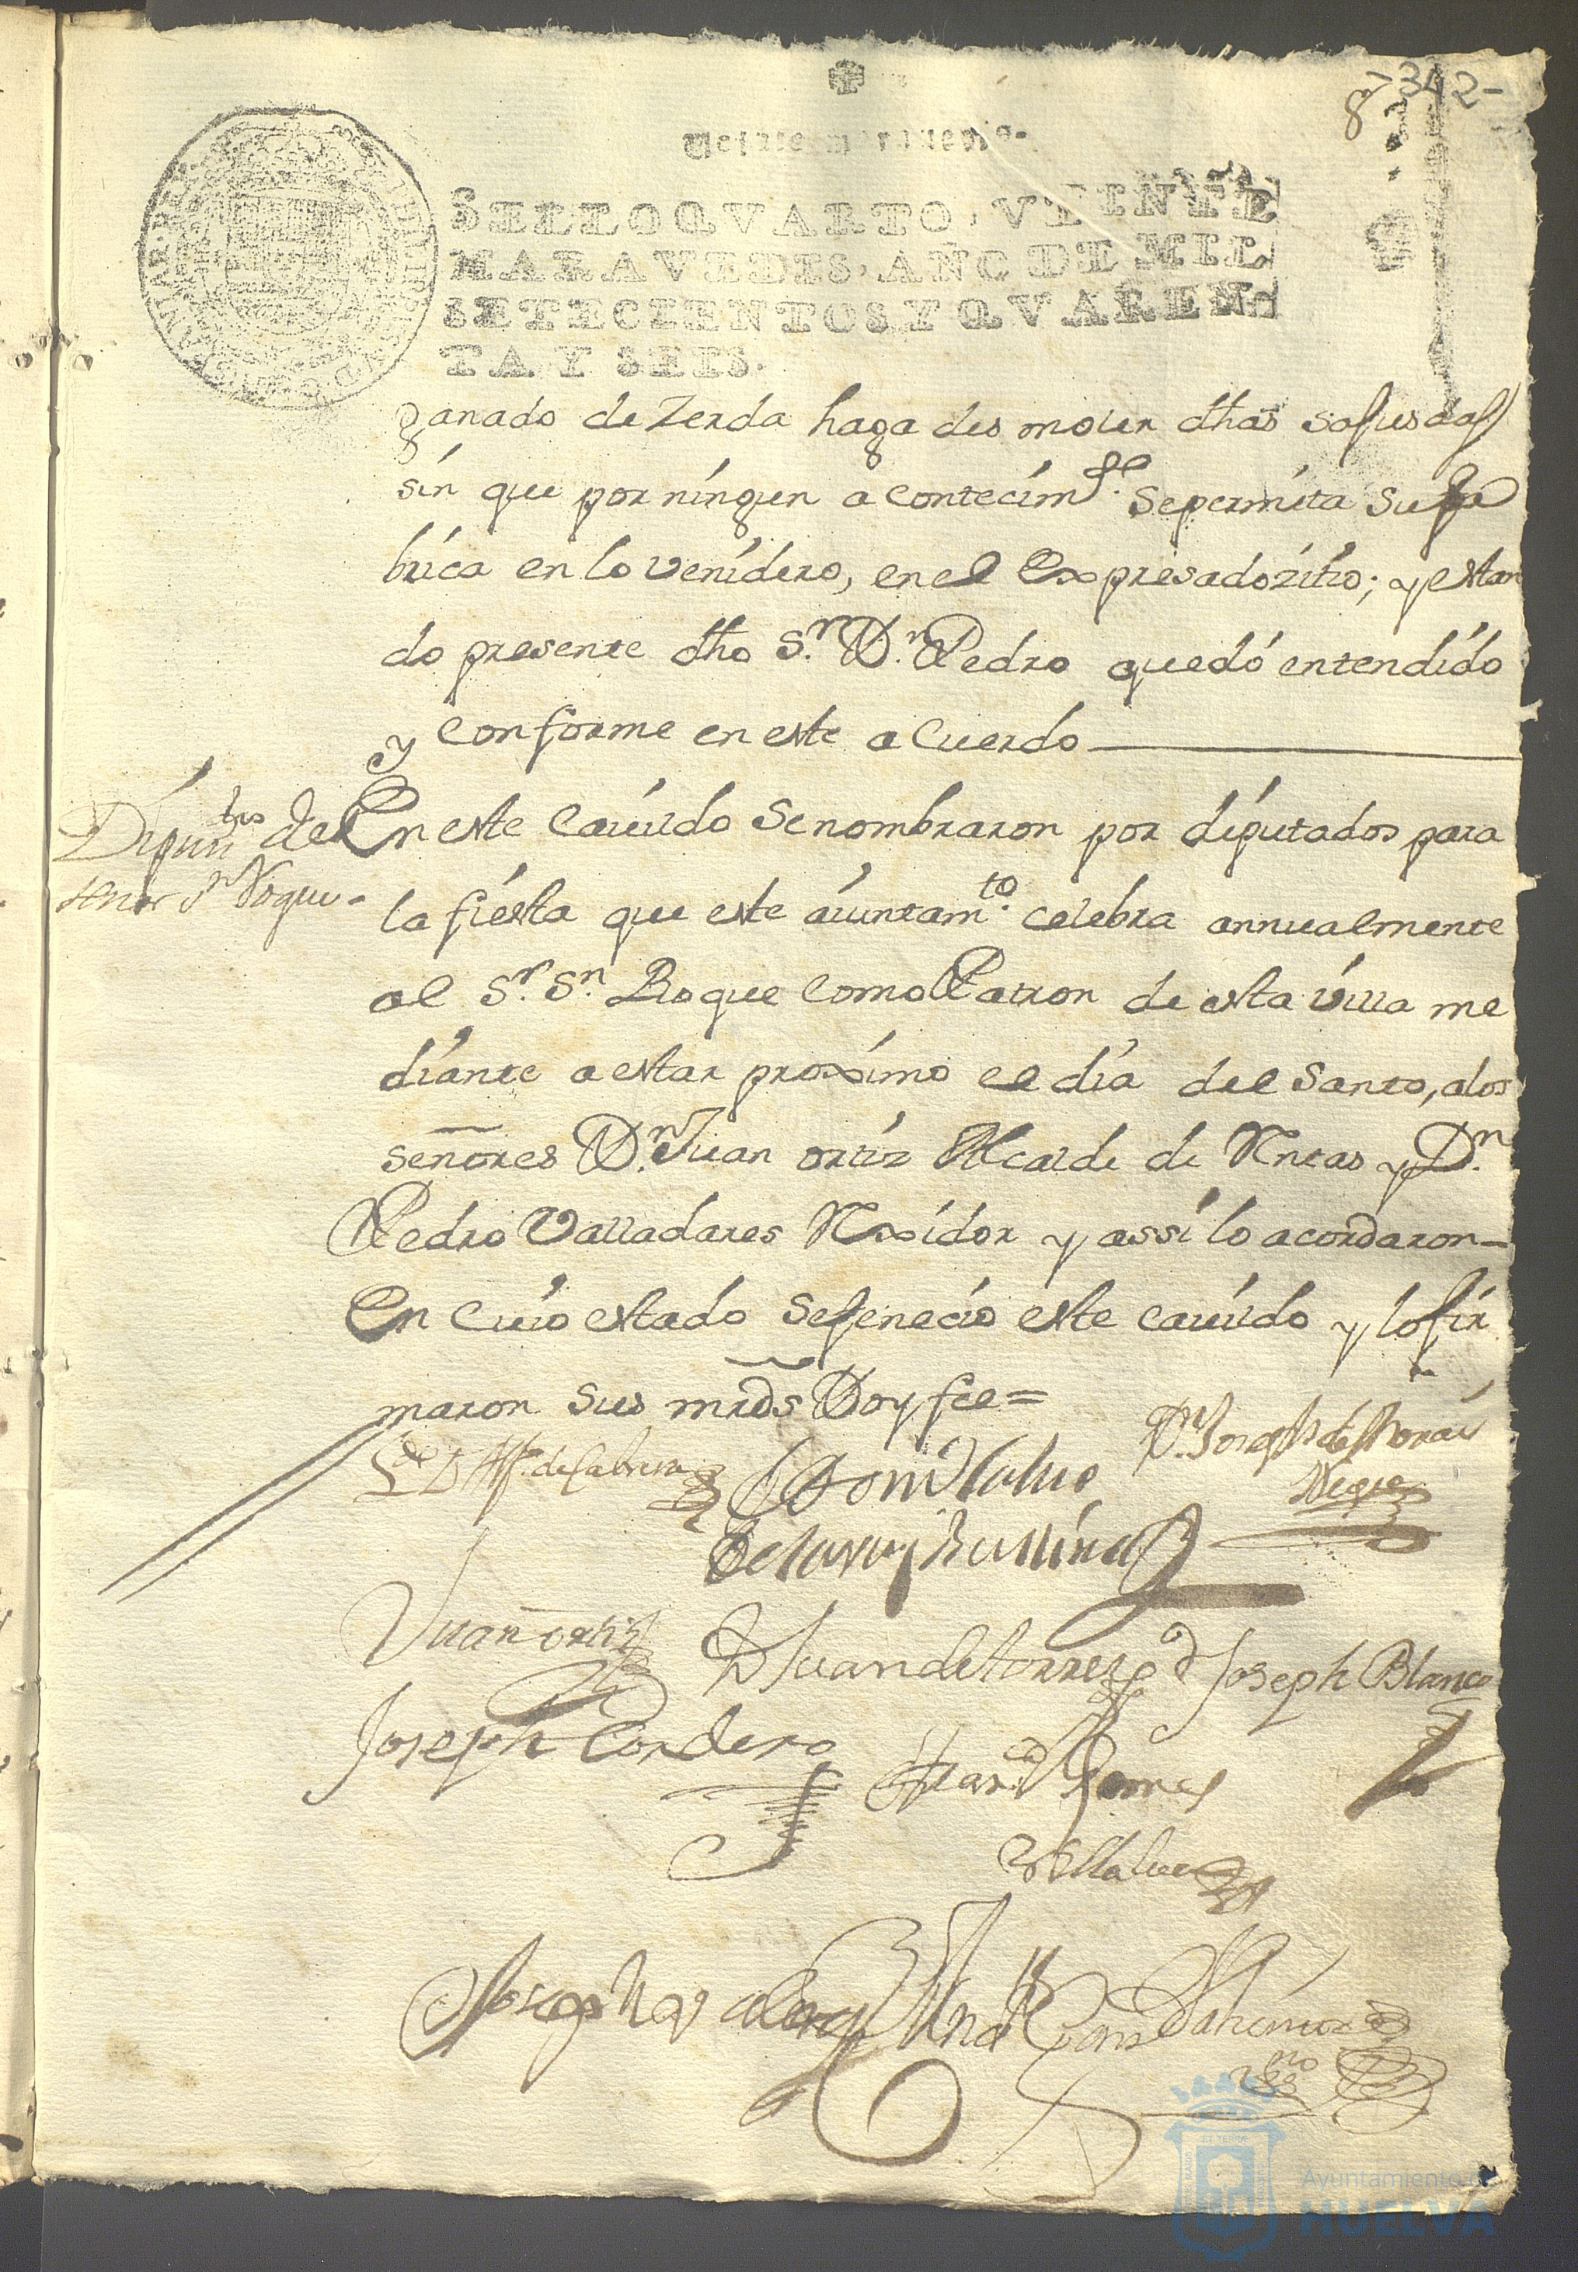 342-
Veinte maravedis.
SELLO QVARTO, VEINTE
MARAVEDIS, AÑO DE MIL
SETECIENTOS Y QVAREN
TA Y SEIS.
ganado de Zerda haga des mover dhas
sin que por ningun acontecimto. se permita su fa
brica en lo venidero, en el expresado zitio; y estan
do presente dho Sr. Dn. Pedro quedó entendido
y conforme en este acuerdo
Diputtdos del
señor Sn Roque.
En este cavildo se nombraron por diputados para
la fiesta que este aiuntamto. celebra annualmente
al Sr. Sn. Roque como Patron de esta villa me
diante a estar proximo el dia del Santo, a los
señores Dn. Juan ortiz Alcalde de Rntas y Dn.
Pedro Valladares Rexidor y assi lo acordaron
En cuio estado se fenecio este cavildo y lo fir
maron sus mrds Doy fee=
Ldo. D Alfo. de Cabrera
Dn. Joseph de
Juan ortiz
D Juan de torres
d Joseph Blanco
Joseph Cordero
Gomes
Villalva
Joseph
Ximenez
Essno
Ayuntamiento de
HUELVA